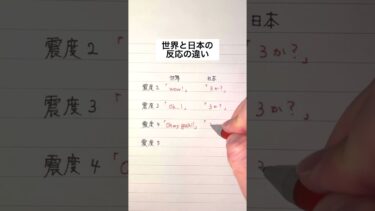 世界と日本の
反応の違い
世界 日本
震度2「wow!」 「3か?」
震度3「Oh..!」 「3か?」
震度4「Oh my gosh!!」 「
震度5
日本
震度2「 「3か?」
震度3「 「3か?」
震度4「Oh